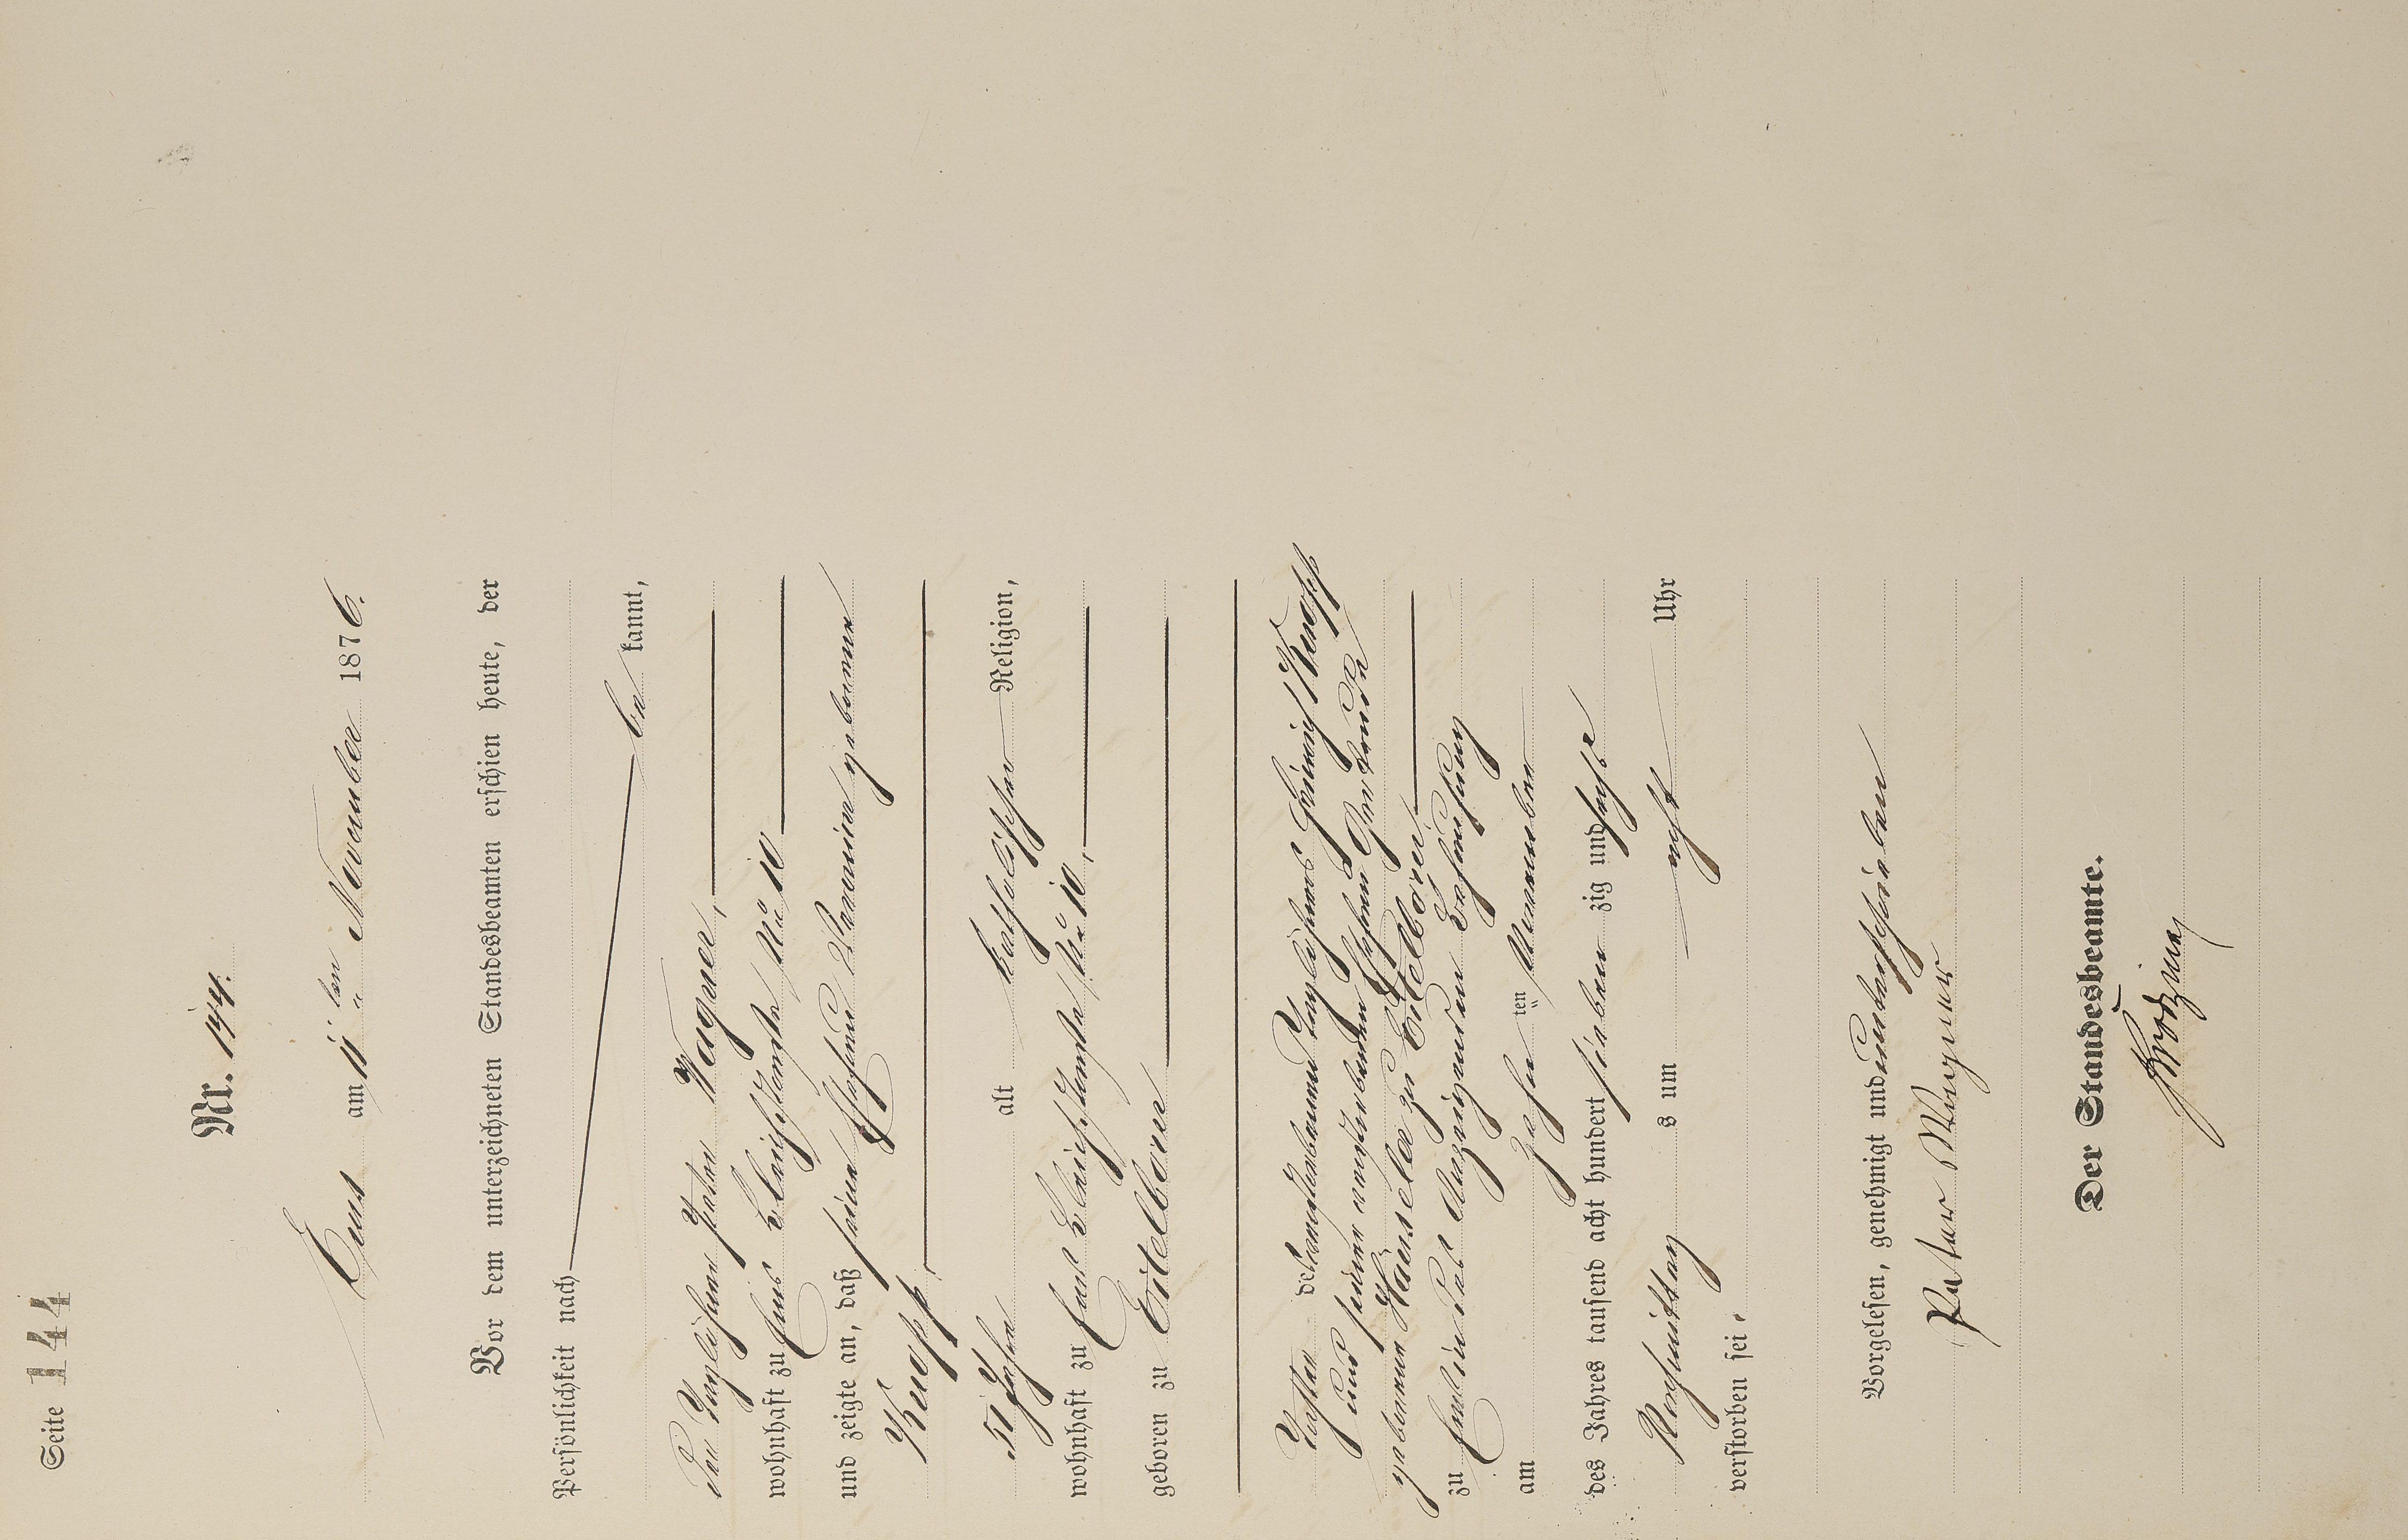 Seite 144
Nr. 144.
Ems am 11ten November 1876.
Vor dem unterzeichneten Standesbeamten erschien heute, der
Persönlichkeit nach
be kannt,
der Taglöhner Peter Wagner,
wohnhaft zu Ems Bleichstraße No 10
und zeigte an, daß seine Ehefrau geborene
Knopp,
51 Jahre alt katholischer Religion,
wohnhaft zu Ems Bleichstraße No 10,
geboren zu Eitelborn
Tochter des verstorbenen Taglöhners Heinrich Knopp
und seiner verstorbenen Ehefrau Gertrude
geborenen Haenseler zu Eitelborn
zu Ems in des Anzeigenden Behausung
am zehn ten November
des Jahres tausend acht hundert sieben zig und sechs
Nachmittags um acht Uhr
verstorben sei.
Vorgelesen, genehmigt und unterschrieben
Peter Wagner
Der Standesbeamte.